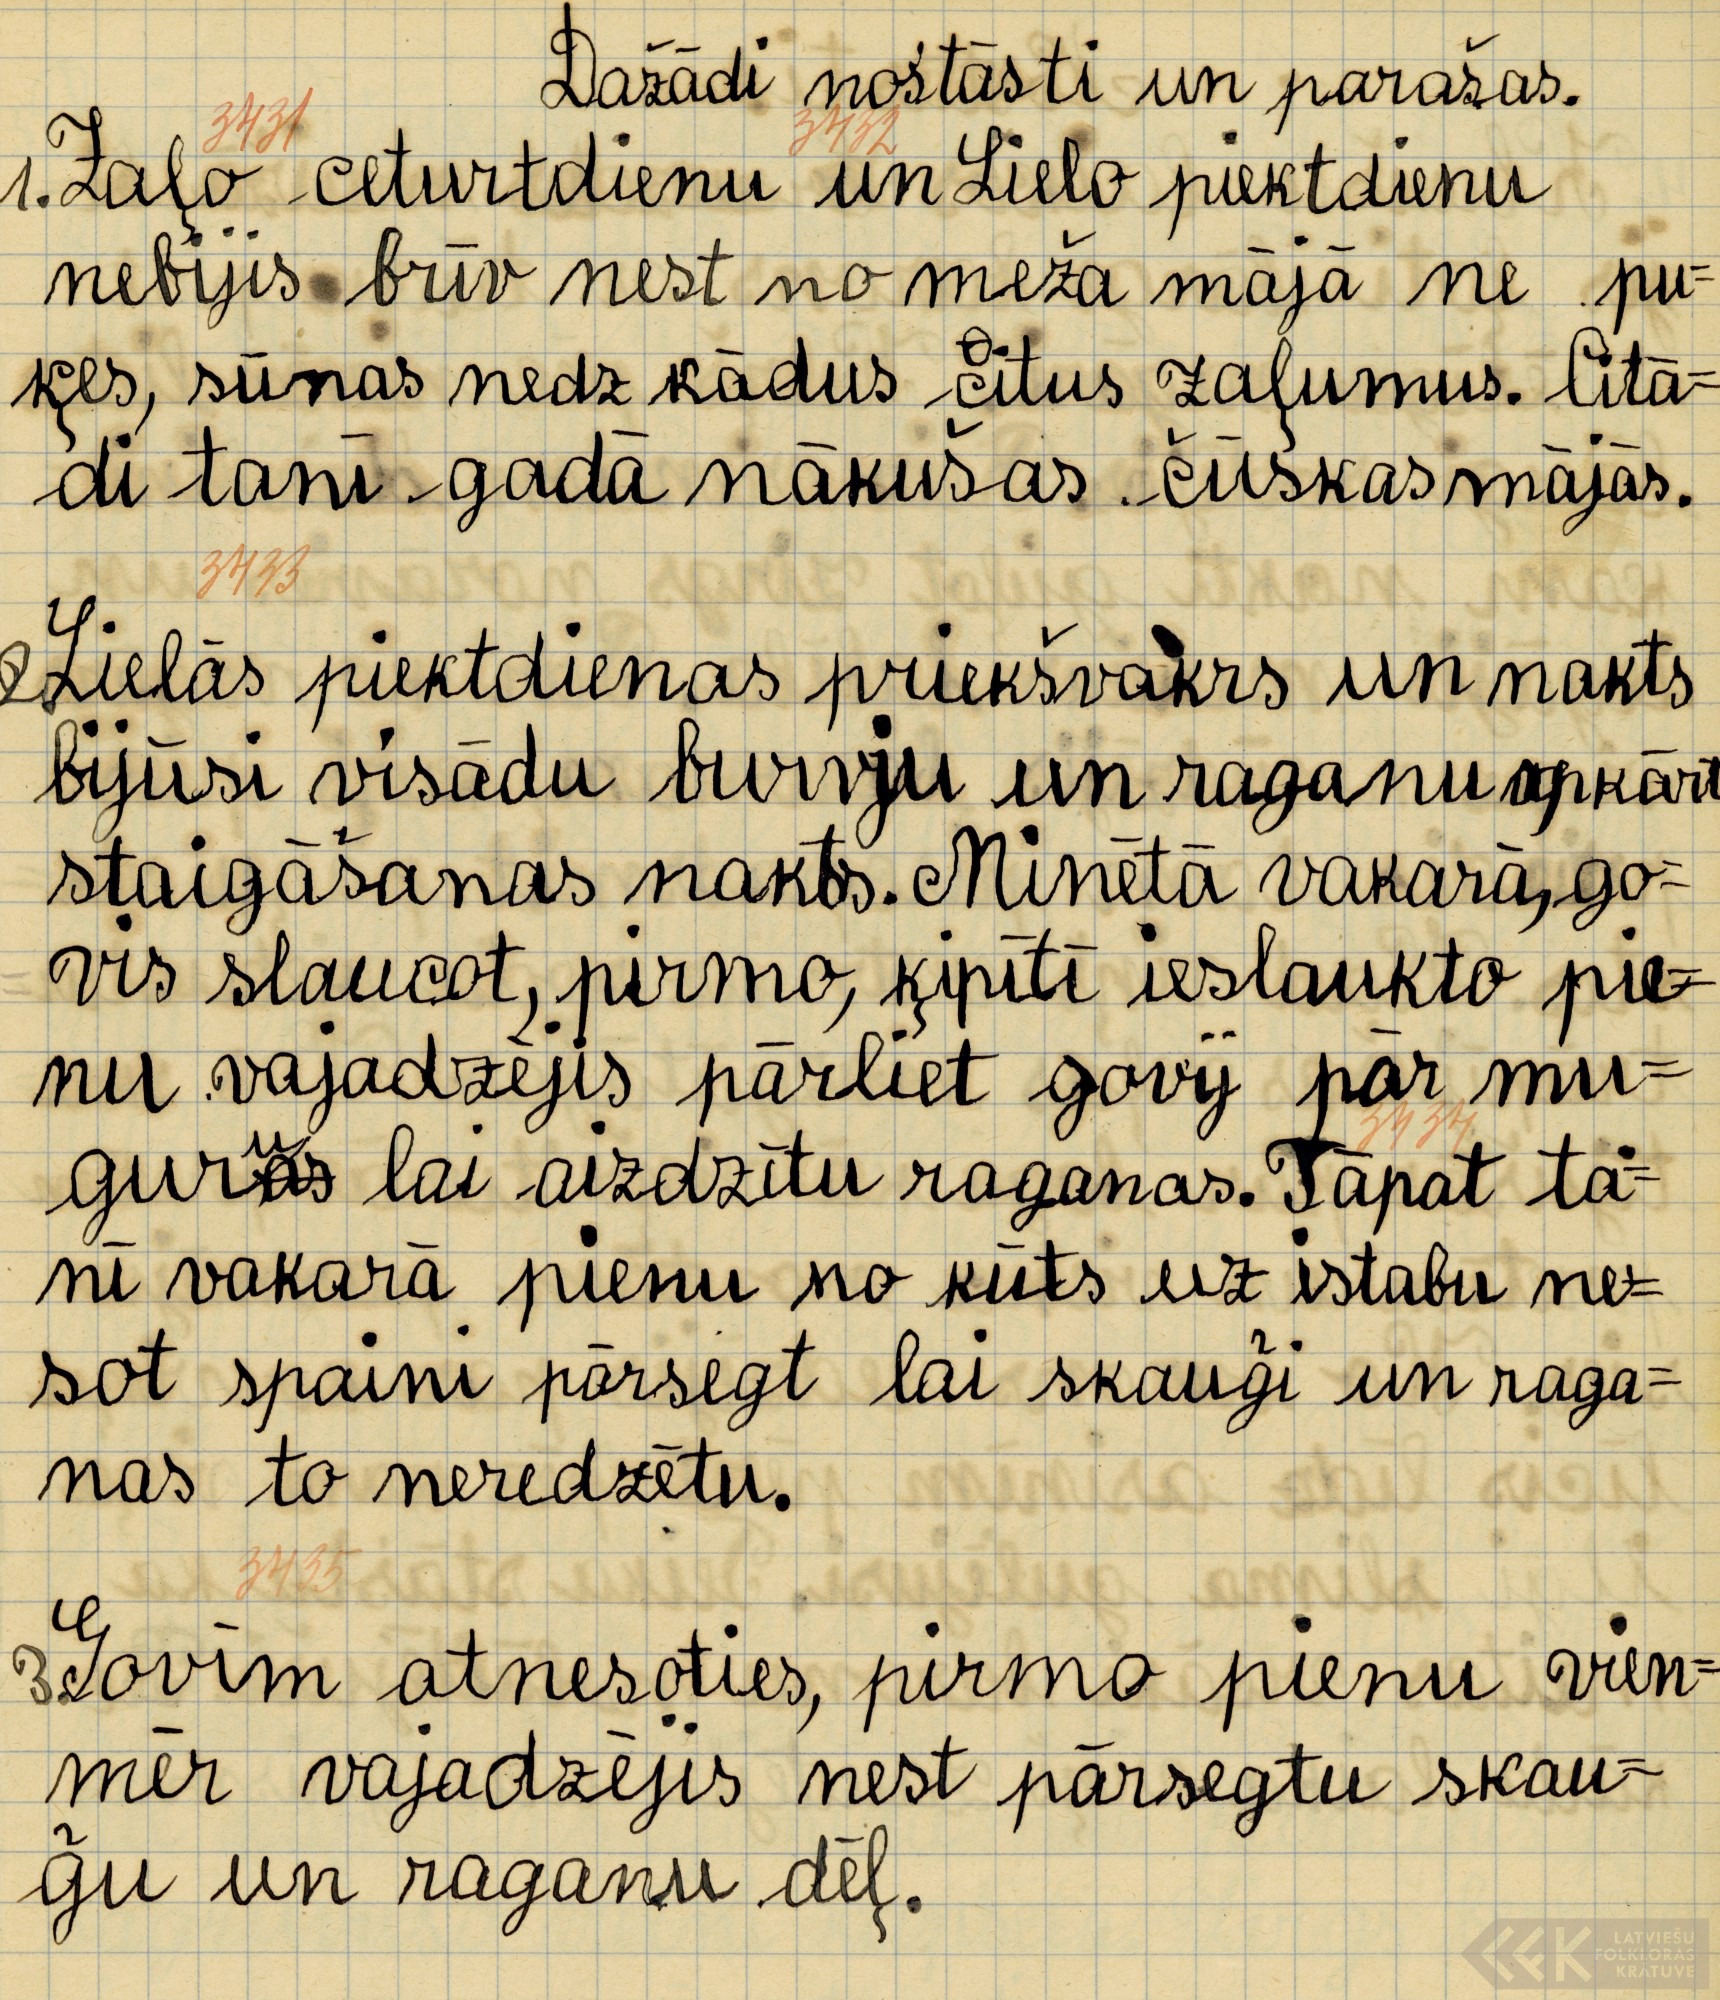 Dažādi nostāsti un parašas.
3431 3432
1. Zaļo ceturtdienu un Lielo piektdienu
nebijis brīv nest no meža mājā ne pu=
ķes, sūnas nedz kādus citus zaļumus. Citā=
di tanī gadā nākušas čūskas mājās.
3433
2. Lielās piektdienas priekšvakrs un nakts
bijūsi visādu burvju un raganu apkārt
staigāšanas nakts. Minētā vakarā, go=
vis slaucot, pirmo, ķipītī ieslaukto pie=
nu vajadzējis pārliet govij pār mu=
3434
guru lai aizdzītu raganas. Tāpat ta=
nī vakarā pienu no kūts uz istabu ne=
sot spaini pārsegt lai skauģi un raga=
nas to neredzētu.
3435
3. Govīm atnesoties, pirmo pienu vien=
mēr vajadzējis nest pārsegtu skau=
ģu un raganu dēļ.
LATVIEŠU
FOLKLORAS
KRĀTUVE